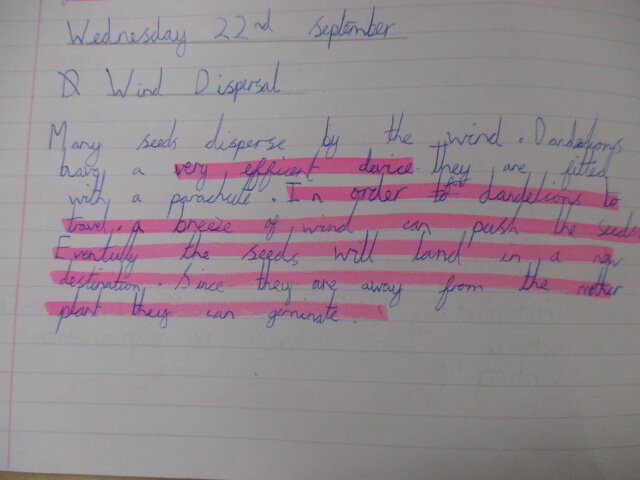 Wednesday 22nd September
Wind Dispersal
Many seeds disperse by the wind. Dandelions
have a very efficent device. they are fitted
with a parachute. In order to for dandelions to
travel, a breeze of wind can push the seeds
Eventully the seeds will land in a new
destination. Since they are away from the mother
plant they can geminate.